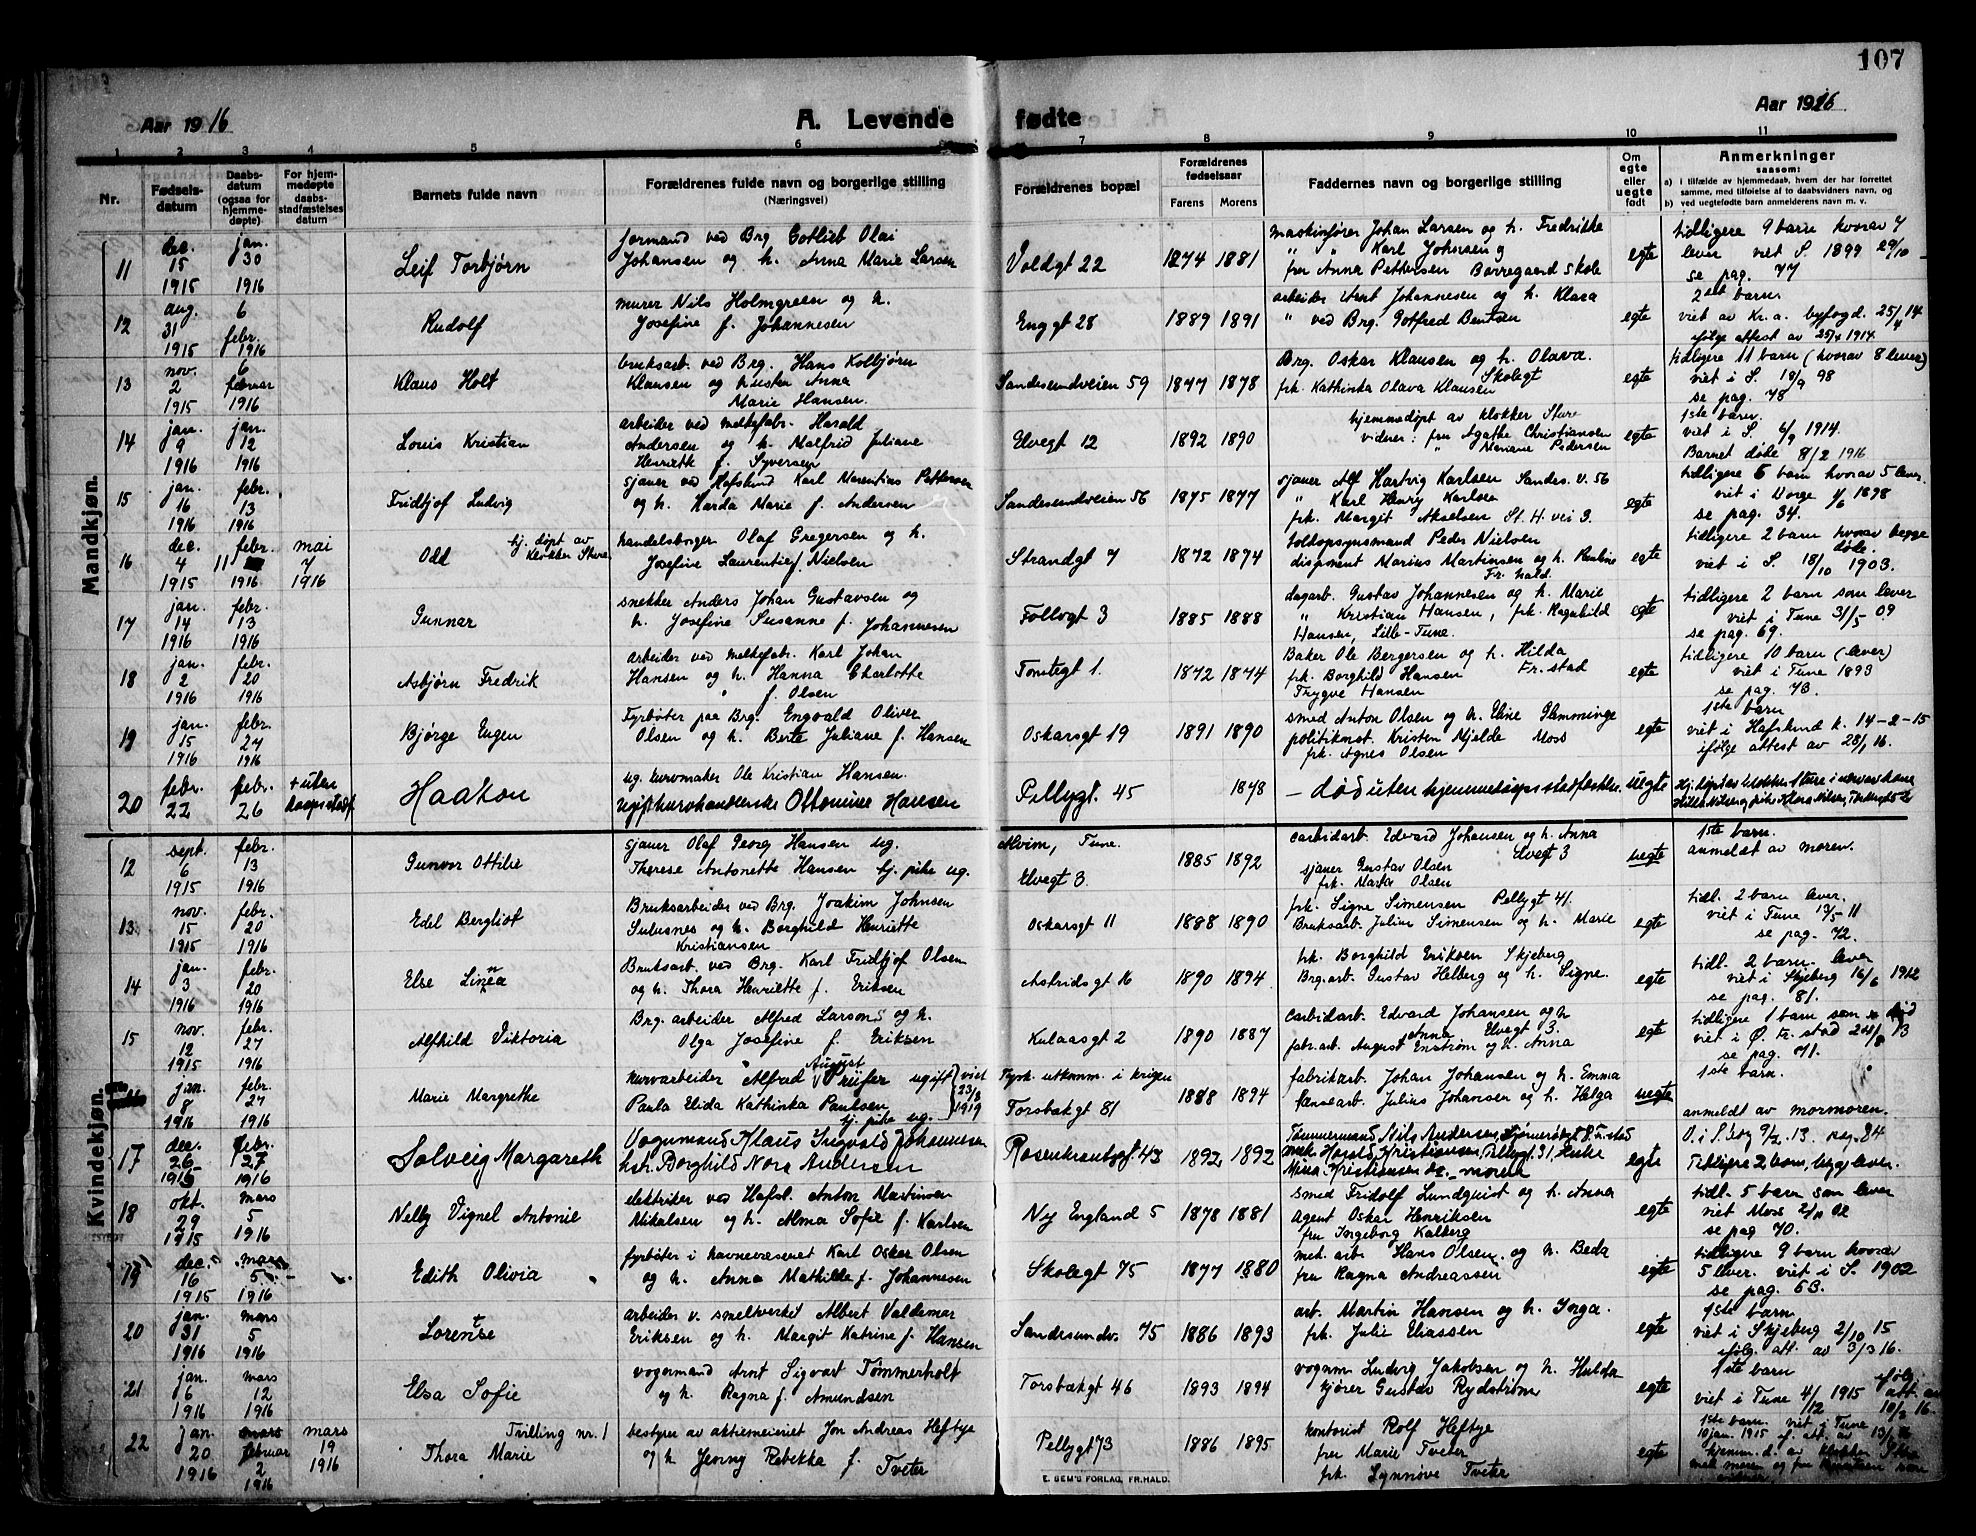 107
Aar 1916
A. Levende fødte
Aar 1916
1 2 3 4 5 6 7 8 9 10 11
Nr.
Fødsels-
datum
Daabs-
datum
(ogsaa for
hjemme-
døpte)
For hjem-
medøpte
daabs-
stadfæstelses
datum
Barnets fulde navn
Forældrenes fulde navn og borgerlige stilling
(Næringsvei)
Forældrenes bopæl
Forældrenes
fødselsaar
Farens Morens
Faddernes navn og borgerlige stilling
Om
egte
eller
uegte
født
Anmerkninger
saasom:
a) i tilfælde av hjemmedaab, hvem der har forrettet
samme, med tilføielse af to daabsvidners navn, og
b) ved uegtefødte barn anmelderens navn m. v.
Mandkjøn.
11 dec. 15 1915 jan. 30 1916 Leif Torbjørn
formand ved Brg Gotlieb Olai
Johansen og h. Anna Marie Larsen
Voldgt 22 1874 1881
maskinfører Johan Larsen og h. Fredrikke
" " Karl Johnsen og
fru Anna Pettersen Borregaard skole
egte
tidligere 9 barn hvorav 7
lever viet S. 1899 29/10
se pag. 77
12 aug. 31 1915 6 febr. 1916 Rudolf
murer Nils Holmgreen og h.
Josefine f. Johannesen
Enggt 28 1889 1891
arbeider Arnt Johannesen og h. Klara
" ved Brg. Gotfred Bentsen
egte
2det barn
viet av Kr.a. byfogd. 25/4 14
ifølge attest av 25/4 1914
13 nov. 2 1915 6 februar 1916 Klaus Holt
bruksarb. ved Brg. Hans Kolbjørn
Klausen og hustru Anna
Marie Hansen.
Sandesundveien 59 1877 1878
Brg. Oskar Klausen og h. Olava.
frk. Kathinka Olava Klausen Skolegt
egte
tidligere 11 barn (hvorav 8 lever)
viet i S. 18/9 98
se pag. 78
14 jan. 9 1916 jan. 12 1916 Louis Kristian
arbeider ved melkefabr. Harald
Andersen og h. Malfrid Juliane
Henriette f. Syversen
Elvegt 12 1892 1890
hjemmedøpt av klokker Sture
vidner: fru Agathe Christiansen
" Mariane Pedersen
egte
1ste barn.
viet i S. 6/9 1914.
Barnet døde 8/2 1916
15 jan. 16 1916 febr. 13 1916 Fridtjof Ludvig
sjauer ved Hafslund Karl Marentius Pettersen
og h. Harda Marie f. Andersen
Sandesundveien 56 1875 1877
sjauer Alf Hartvig Karlsen Sandes. v. 56
" Karl Henry Karlsen
frk. Margit Akselsen St. H. vei 3.
egte
tidligere 6 barn hvorav 5 lever.
viet i Borge 1898
se pag. 34.
16 dec. 4 1915 febr. 11 1916 mai 7 1916 Odd
hj. døpt av
klokker Sture
handelsborger Olaf Gregersen og h.
Josefine Laurentie f. Nielsen
Strandgt 7 1872 1874
toldopsynsmand Peder Nielsen
disponent Marius Martinsen og h. Pauline
Fr. hald.
egte
tidligere 2 barn hvorav begge
døde.
viet i S. 18/10 1903.
17 jan. 14 1916 febr. 13 1916 Gunnar
snekker Anders Johan Gustavsen og
h. Josefine Susanne f. Johannesen
Follogt 3 1885 1888
dagarb. Gustav Johannesen og h. Marie
" Kristian Hansen, frk. Ragnhild
Hansen, Lille-Tune.
egte
tidligere 2 barn som lever
viet i Tune 31/5 09
se pag. 69.
18 jan. 2 1916 febr. 20 1916 Asbjørn Fredrik
arbeider ved melkefabr. Karl Johan
Hansen og h. Hanna Charlotte
f. Olsen
Tomtegt 1. 1872 1874
Baker Ole Bergersen og h. Hilda
frk. Borghild Hansen Fr. stad
Trygve Hansen
egte
tidligere 10 barn (lever)
viet i Tune 1893
se pag. 73.
19 jan. 15 1916 febr. 27 1916 Bjørge Eugen
Fyrbøter paa Brg. Engvald Oliver
Olsen og h. Berte Juliane f. Hansen
Oskarsgt 19 1891 1890
smed Anton Olsen og h. Eline Glemminge
politikonst. Kristen Mjelde Moss
frk. Agnes Olsen
egte
1ste barn
viet i Hafslund k. 14-2-15
ifølge attest av 28/1 16.
20 febr. 22 febr. 26 + uten
daapsstadf. Haakon
ug. kurvmaker Ole Kristian Hansen.
ugift kurvhandlerske Ottomine Hansen
Pellygt. 45 1878
— død uten hjemmedaapsstadfestelse.
uegte
Kvindekjøn.
12 sept. 6 1915 febr. 13 1916 Gunvor Ottilie
sjauer Olaf Georg Hansen ug.
Therese Antonette Hansen hj. pike ug.
Alvim, Tune.
Elvegt 3. 1885 1892
carbidarb. Edvard Johansen og h. Anna
Elvegt 3
sjauer Gustav Olsen
frk. Marta Olsen
uegte
1ste barn.
anmeldt av moren.
13 nov. 15 1915 febr. 20 1916 Edel Bergliot
Bruksarbeider ved Brg. Joakim Johnsen
Sulusnes og h. Borghild Henriette
Kristiansen
Oskarsgt 11 1888 1890
frk. Signe Simensen Pellygt 41.
Bruksarb. Julius Simensen og h. Marie
egte
tidl. 2 barn lever.
viet i Tune 13/5 11
se pag. 72.
14 jan. 3 1916 febr. 20 1916 Else Linnea
Bruksarb. ved Brg. Karl Fridtjof Olsen
og h. Thora Henriette f. Eriksen
Astridsgt 16 1890 1894
frk. Borghild Eriksen Skjeberg
Brg.arb. Gustav Helberg og h. Signe.
egte
tidl. 2 barn. lever
viet i Skjeberg 16/6 1912
se pag. 81.
15 nov. 12 1915 febr. 27 1916 Alfhild Viktoria
Brg. arbeider Alfred Larsons og h.
Olga Josefine f. Eriksen
Kulaasgt 2 1890 1887
carbidarb. Edvard Johansen og h
Anna Elvegt 3.
fabr.arb. August Enstrøm og h. Anna
egte
tidligere 1 barn som er død
viet i Ø. Fr. stad 24/8 13
se pag. 71.
jan. 8 1916 febr. 27 1916 Marie Margrethe
kurvarbeider Alfred August Prüfer ugift
Paula Elida Kathinka Paulsen
hj. pike ug.
viet
23/8
1919
Tysk. utkomm. i krigen
Torsbækgt 81 1888 1894
fabrikarb. Johan Johansen og h. Emma
Julius Johansen og h. Helga
uegte
1ste barn.
anmeldt av mormoren.
17 dec. 26 1915 febr. 27 1916 Solveig Margareth
Vognmand Klaus Ingvald Johannesen
hstr. Borghild Nora Andersen
Rosenkrantzgt 43 1892 1892
Tømmermand Nils Andersen,
egte
Tidligere 2 barn, begge lever.
18 okt. 29 1915 mars 5 1916 Nelly Vignel Antonie
elektriker ved Hafsl. Anton Martinsen
Mikalsen og h. Alma Sofie f. Karlsen
Ny England 5 1878 1881
smed Fridolf Lundquist og h. Anna
Agent Oskar Henriksen
fru Ingeborg Kalberg
egte
tidl. 5 barn som lever
viet Moss 2/11 02
se pag 70.
19 dec. 16 1915 mars 5 1916 Edith Olivia
fyrbøter i havnevæsenet Karl Oskar Olsen
og h. Anna Mathilde f. Johannesen
Skolegt 75 1877 1880
mek. arb. Hans Olsen. og h. Beda
fru Ragna Andreassen
egte
tidligere 9 barn hvorav
5 lever. viet i S. 1902
se pag. 63.
20 jan. 31 1916 mars 5 1916 Lorentse
arbeider v. smeltverket Albert Valdemar
Eriksen og h. Margit Katrine f. Hansen
Sandesundv. 75 1886 1893
arb. Martin Hansen og h. Inga.
frk. Julie Eliassen
egte
1ste barn
viet i Skjeberg 2/10 15
ifølg. att. av 3/3 16.
21 jan. 6 1916 mars 12 1916 Elsa Sofie
vognmand Arnt Sigvart Tømmerholt
og h. Ragna f. Amundsen
Torsbækgt 46 1893 1894
vognm. Ludvig Jakobsen og h. Hulda
kjører Gustav Rydstrøm
egte
1ste barn
viet i Tune 4/12 1915 ifølg. att. av
10/2 16.
22 jan. 20 1916 februar 2 1916 mars 19 1916
Tvilling nr. 1
Thora Marie
bestyrer av aktiemeieriet Jon Andreas Heftye
og h Jenny Rebekka f. Tveter
Pellygt 73 1886 1895
kontorist Rolf Heftye
fru Marie Tveter
frk. Synnøve Tveter
egte
1ste barn. viet i Tune
10 jan. 1915
hjemm. d. av klokker Sture
E. SEM'S FORLAG, FR.HALD.